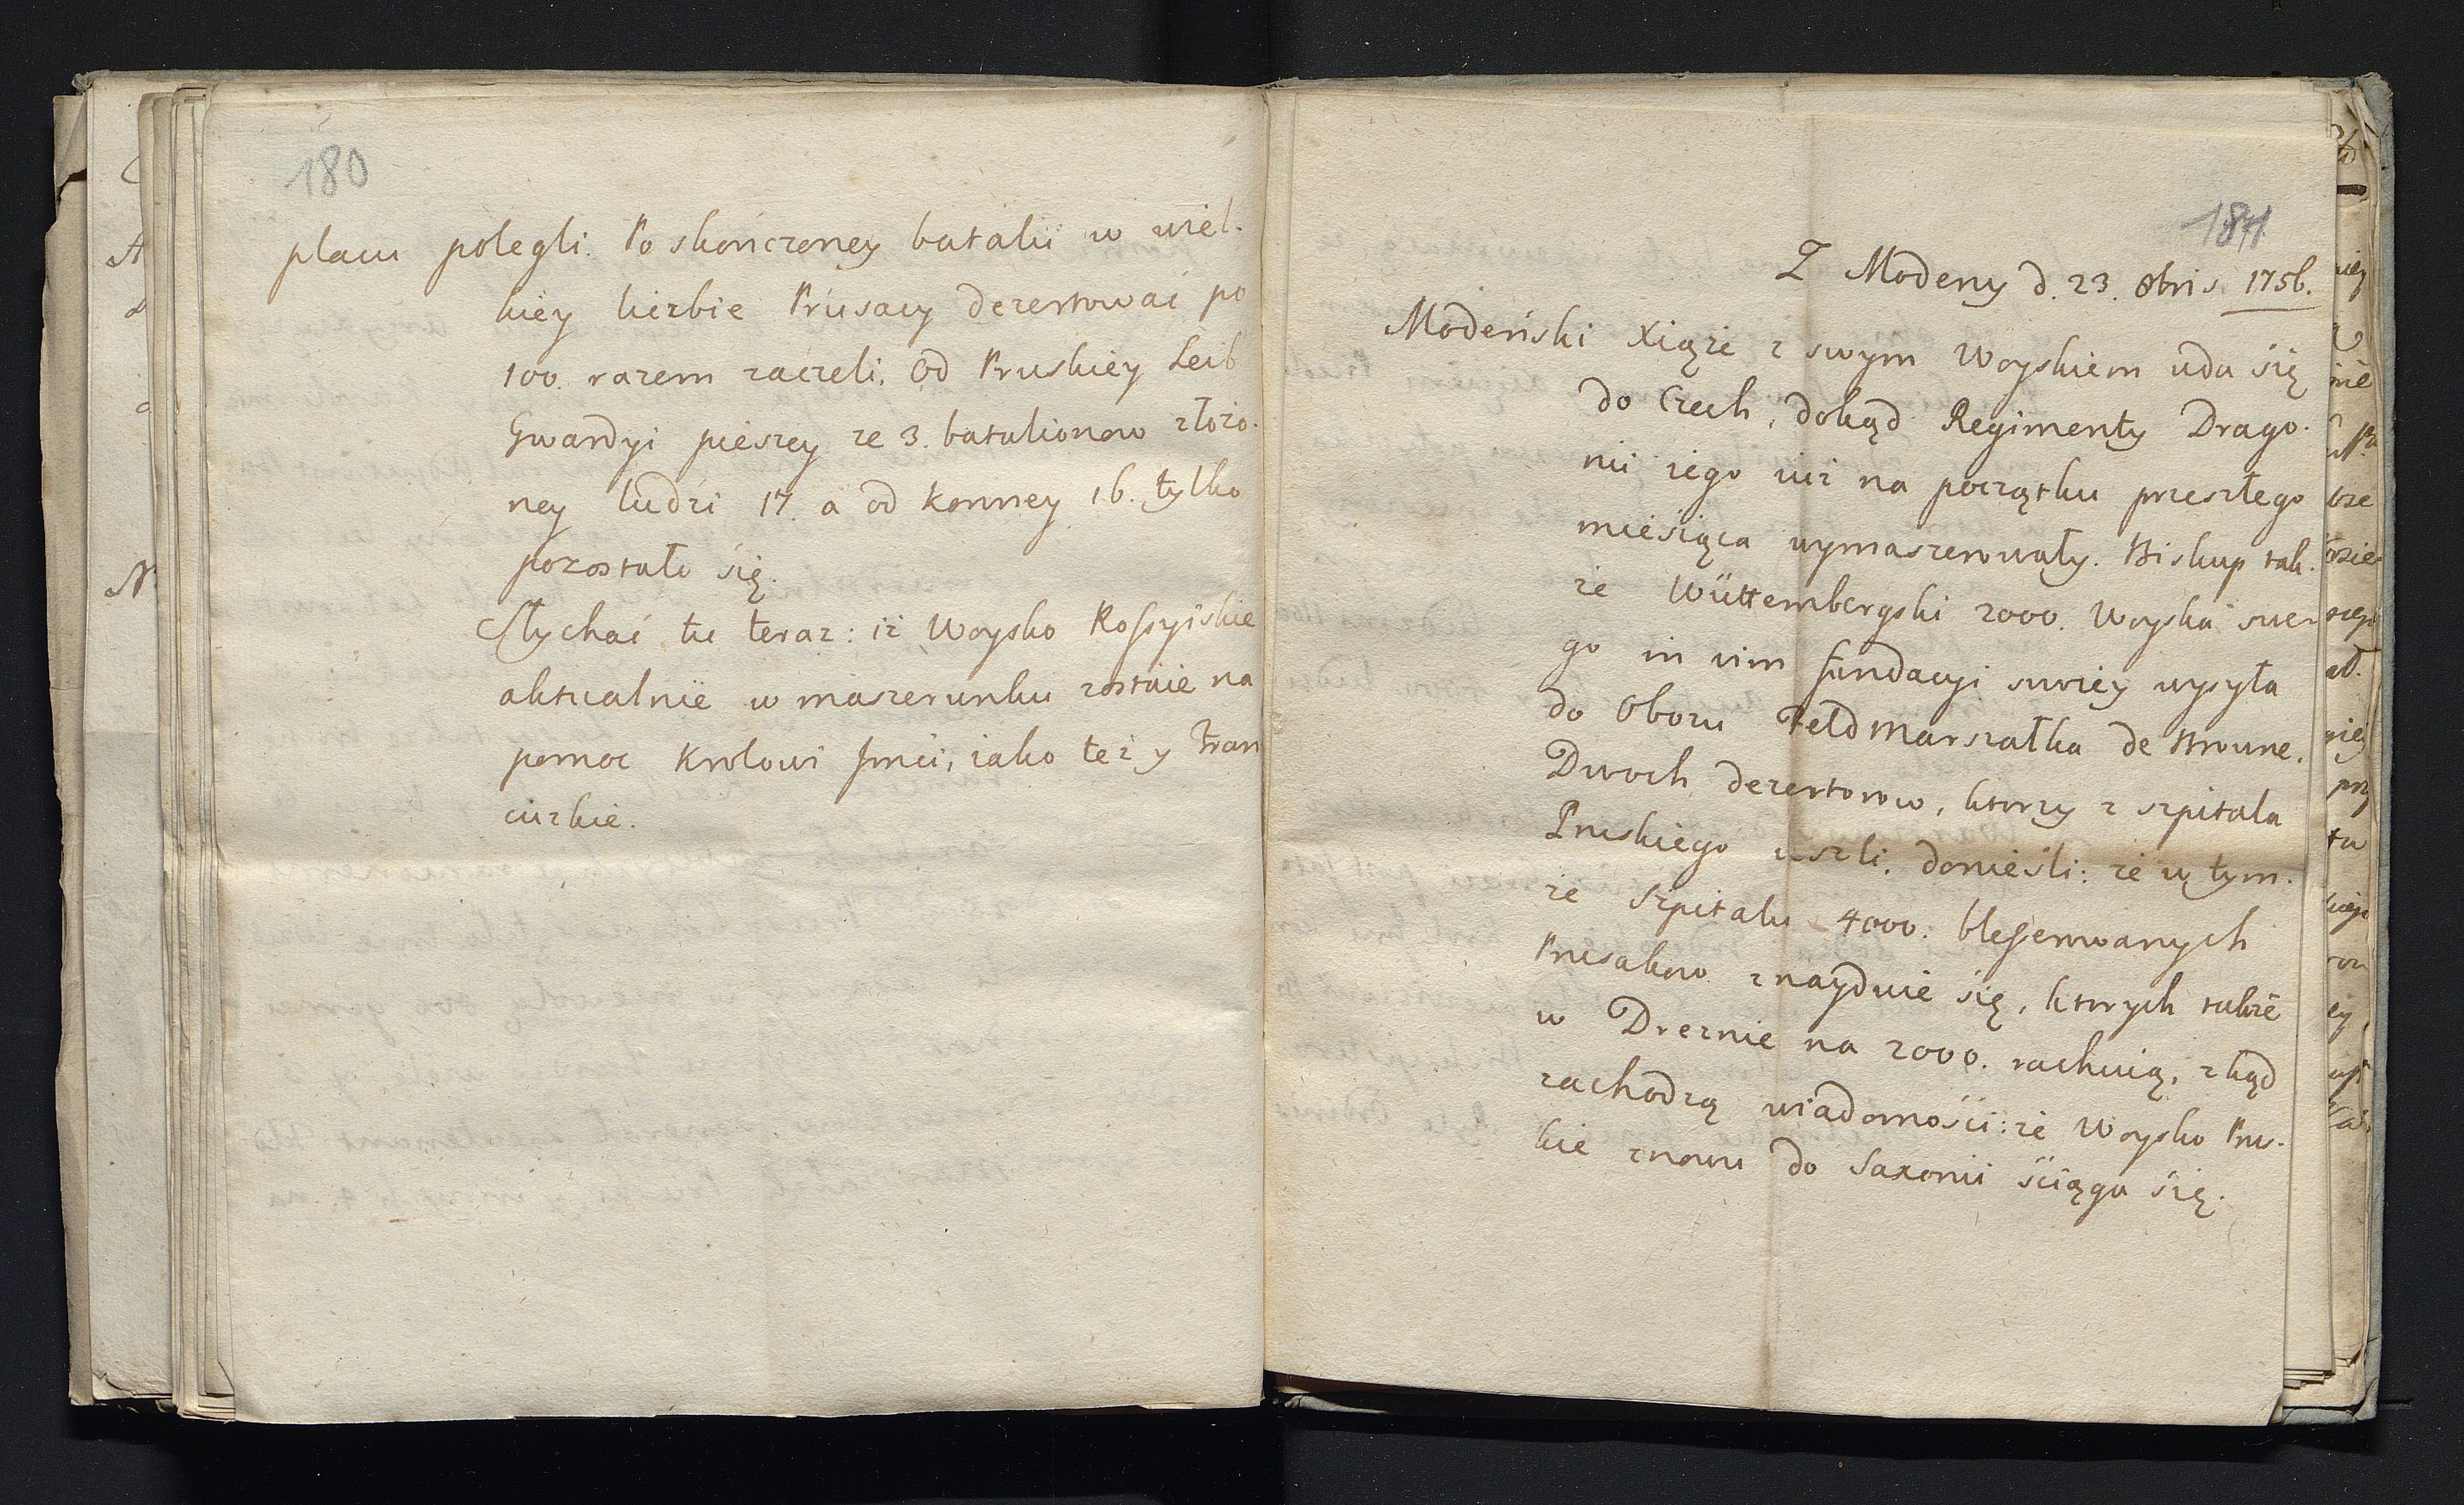 180
placu polegli. Po skończoney batalii w wiel-
kiey liczbie Prusacy dezertować po
100. razem zaczeli. Od Pruskiey Leib
Gwardyi pieszey ze 3. batalionow złożo-
ney ludzi 17. a od konney 16. tylko
pozostało się.
Słychać tu teraz: iż Woysko Rossyiskie
aktualnie w maszerunku zostaie na
pomoc Krolowi Jmći, iako też y Fran
cuzkie.
181
Z Modeny d. 23. 8bris. 1756.
Modeński Xiąże z swym Woyskiem uda się
do Czech, dokąd Regimenty Drago-
nii iego iuż na początku przeszłego
miesiąca wymaszerowały. Biskup tak-
że Würtembergski 2000. Woyska swe-
go in vim fundacyi swoiey wysyła
do Obozu Feldmarszałka de Broune.
Dwoch dezertorow, ktorzy z szpitala
Pruskiego uszli, donieśli: że w tym-
że Szpitalu 4000. blesserowanych
Prusakow znayduie się, ktorych także
w Dreznie na 2000. rachuią, zkąd
zachodzą wiadomości: że Woysko Prus-
kie znowu do Saxonii ściąga się.